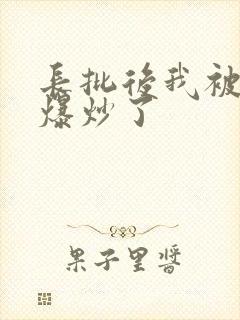 長批後我被
爆炒了
果子里醬